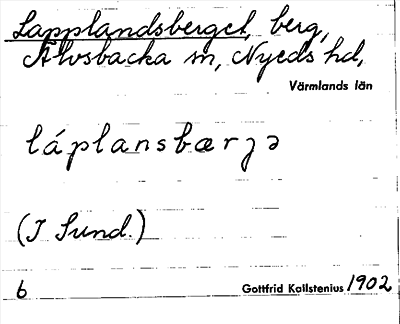 Lapplandsberget, berg,
Älvsbacka sn, Nyeds hd,
Värmlands län
láplansbærʒə
(I Sund.)
6 Gottfrid Kallstenius 1902